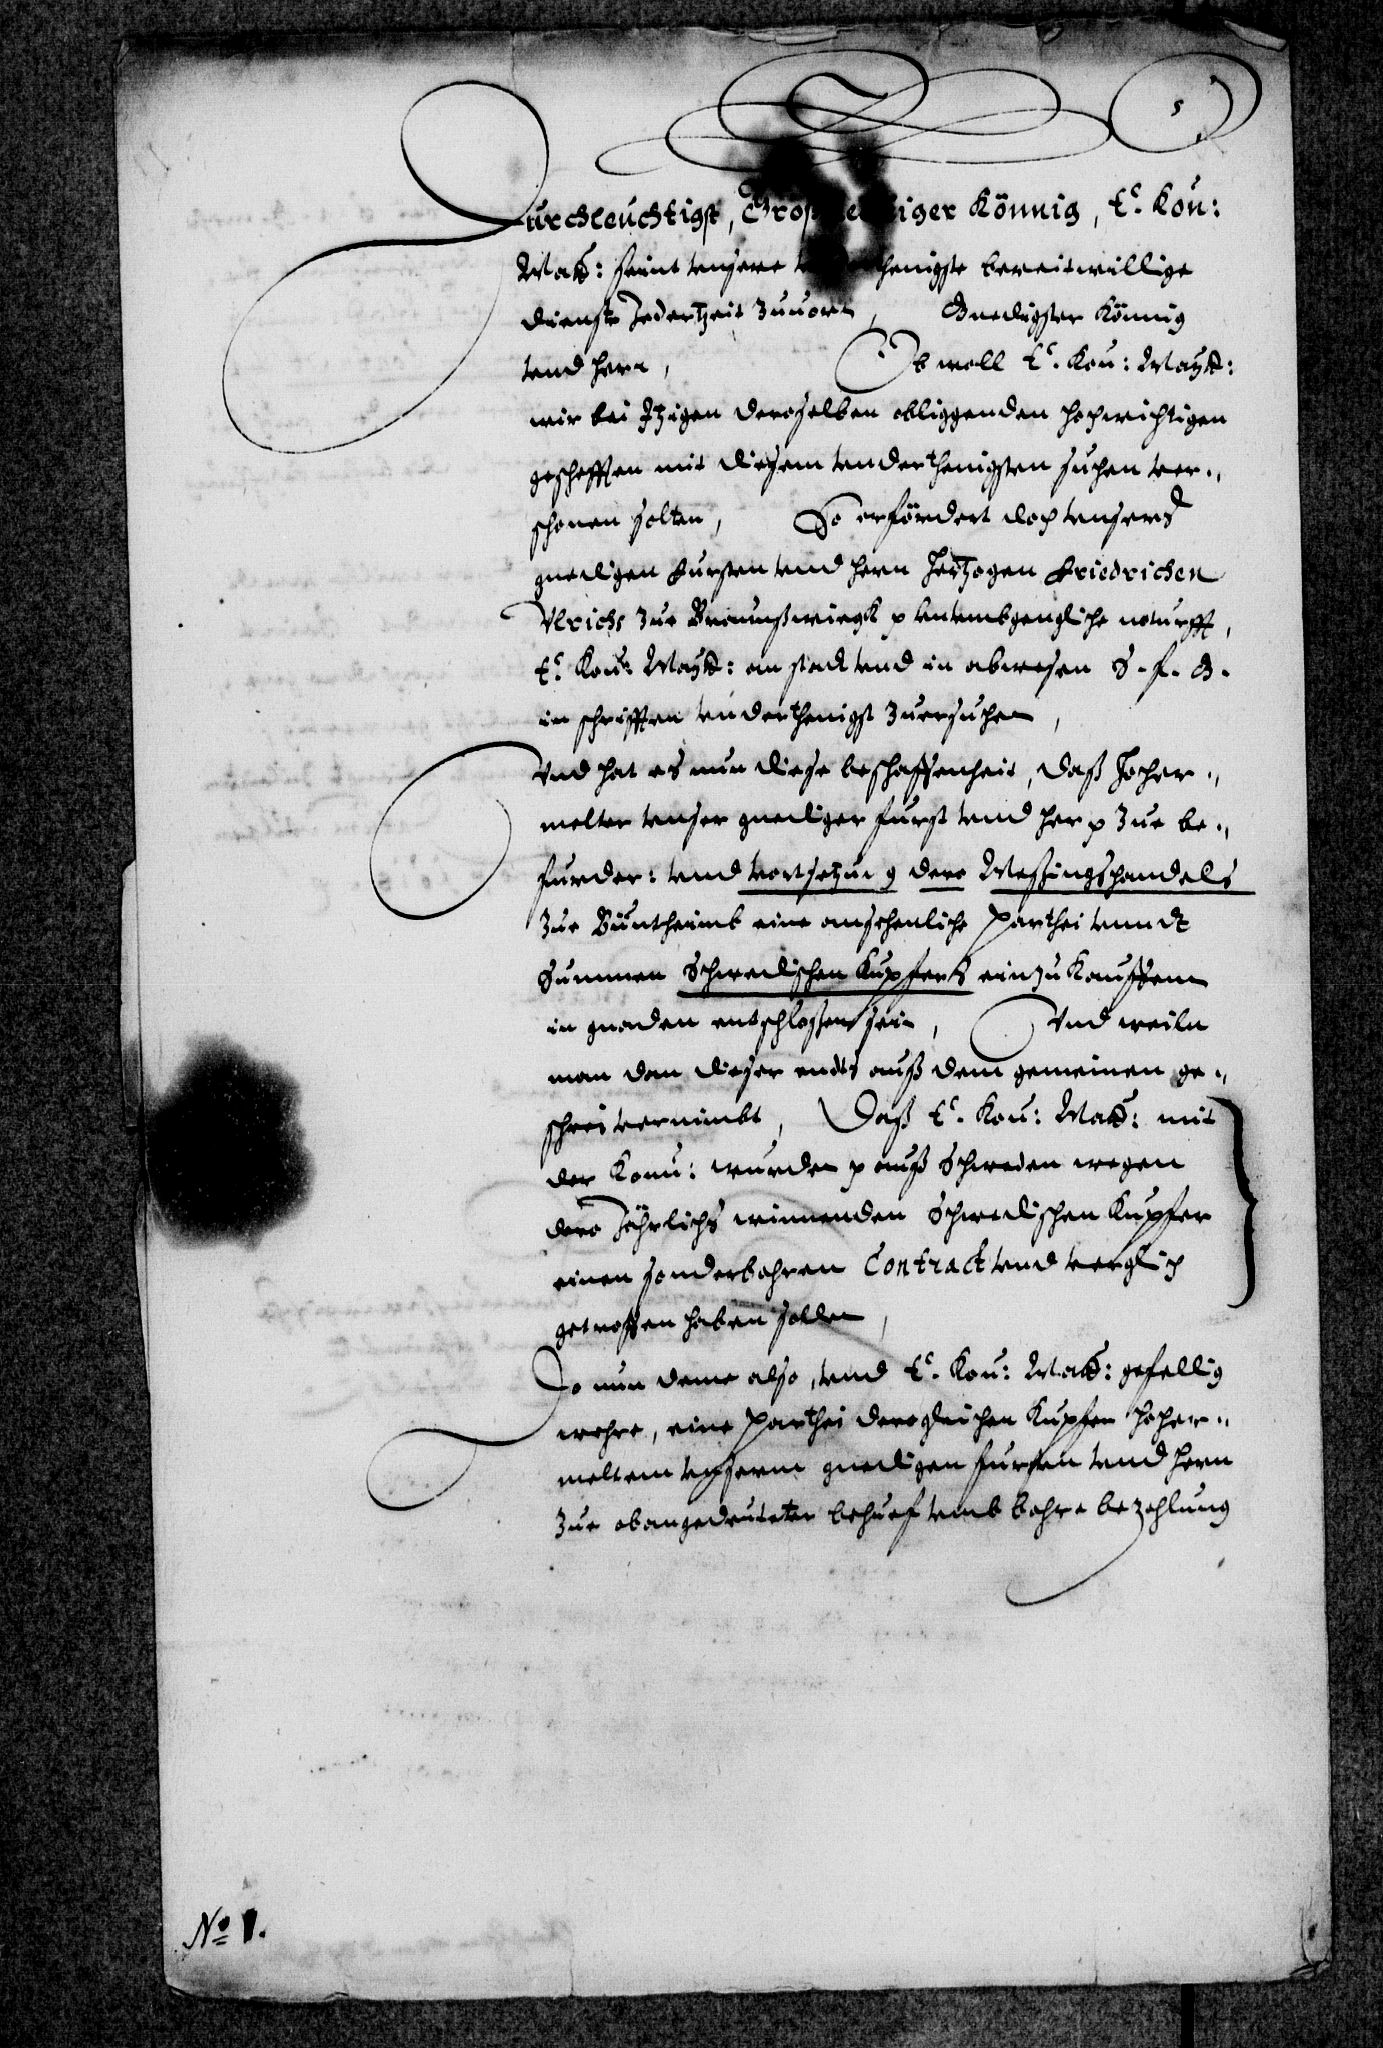 Durchleuchtigst, Großmechtiger Könnig, E. Kön:
Maÿ: seint vnsere vnderthenigste bereitwillige
dienste Jedertzeit zuuorn, Gnedigster Könnig
vnd herr, Ob woll E. Kön: Maytt:
wir bei Itzigen deroselben obliggenden hochwichtigen
geschefften mit diesem vnderthenigsten suchen ver„
schonen solten, So erfördert doch vnsers
gnedigen Fursten vnd hern Hertzogen Friedrichen
Vlrichs zue Braunßwiegk p vnvmbgengliche noturfft,
E. Kön: Maytt: an stadt vnd in abwesen S. f. G.
in schrifften vnderthenigst zuersuchen,
Vnd hat es nun diese beschaffenheit, daß hocher„
melter vnser gnediger furst vnd her p zue be„
furder: vnd vortsetzung dero Messingshandels
zue Büntheimb eine ansehenliche Parthei vnndt
Summen Schwedischen Kupfers einzukauffenn
in gnaden entschlossen sein, Vnd weiln
man dan dieser endts auß dem gemeinen ge„
schrei vernimbt, Daß E. Kön: Maÿ: mit
der Könn: wurden p auß Schweden wegen
dero Jährlichs winnenden Schwedischen Kupfer
einen sonderbahren Contract vnd verglich
getroffen haben sollen,
Do nun deme also, vnd E. Kön: Maÿ: gefellig
wehre, eine Parthei dergleichen Kupfer hocher„
meltem vnserm gnedigen fursten vnd hern
zue obangedeuteter behuef vmb bahre bezahlung
No 1.